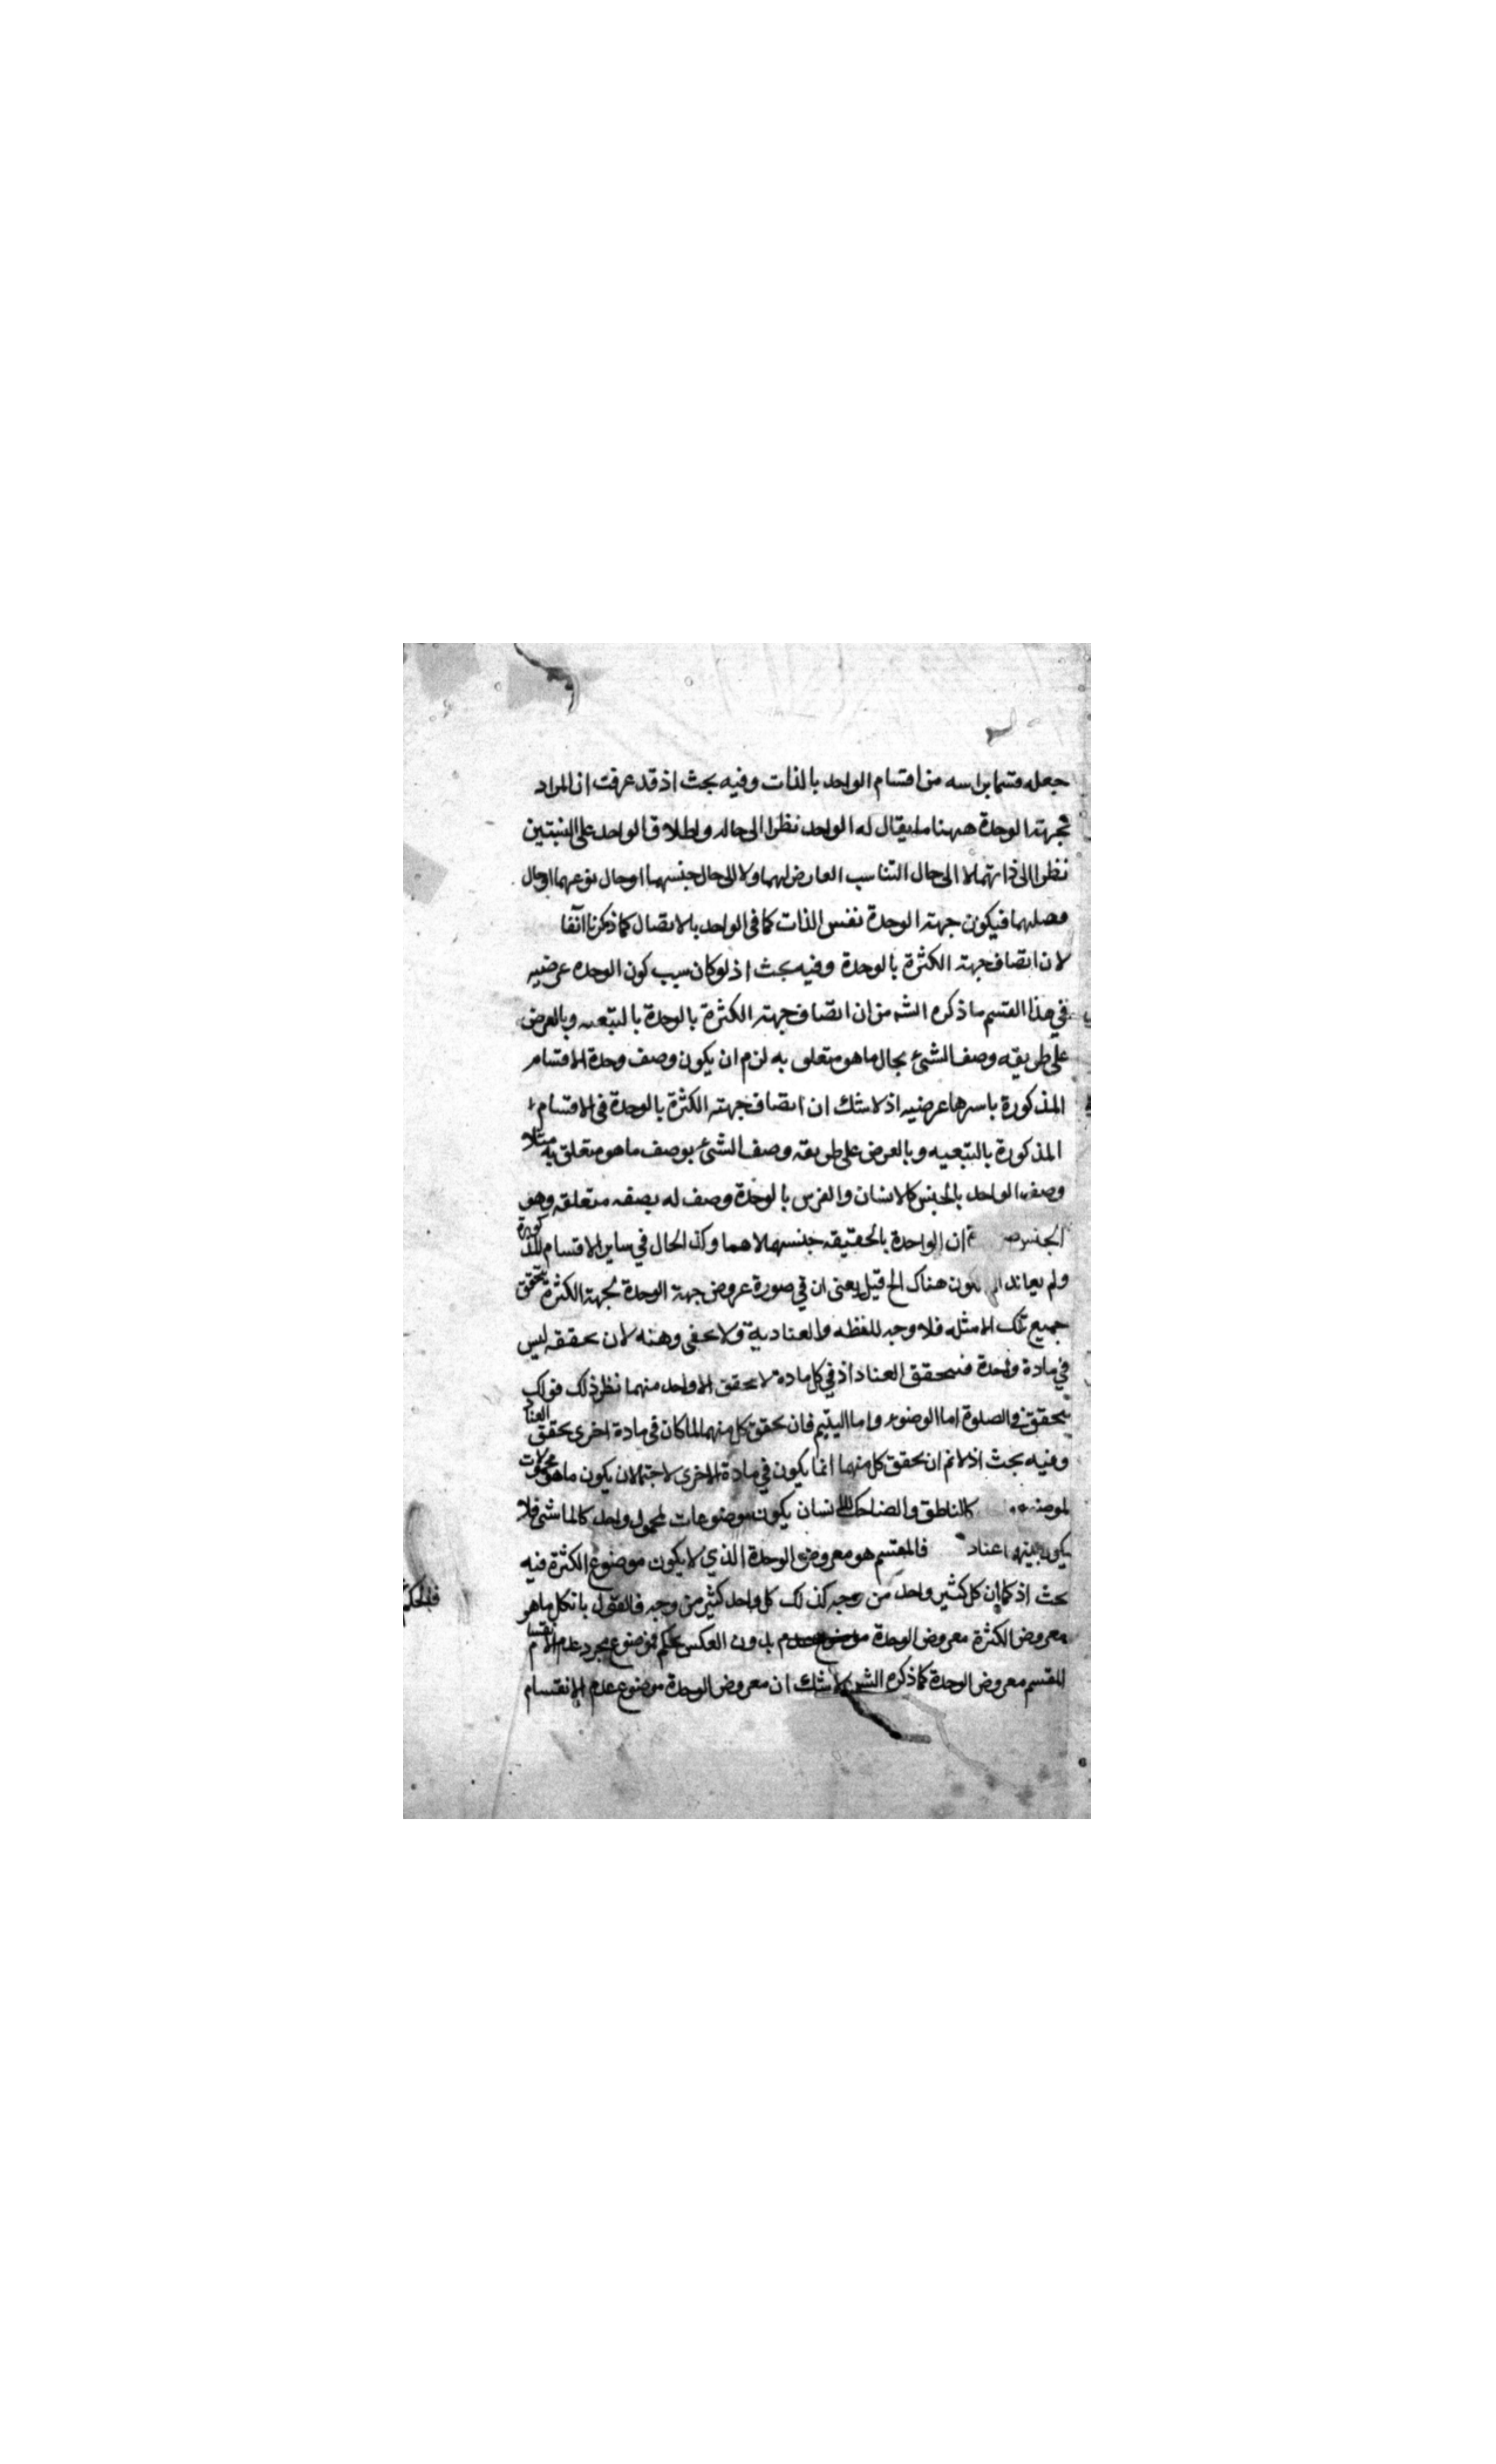 جعله قسما براسه من اقسام الواحد بالذات وفيه بحث اذ قد عرفت ان المراد
بجهة الوحدة ههنا ما يقال له الواحد نظرا الى حاله واطلاق الواحد على النسبتين
نظرا الى ذاتهما لا الى حال التناسب العارض لهما ولا الى حال جنسهما او حال نوعهما او حال
فصلهما فيكون جهة الوحدة نفس الذات كما فى الواحد بالاتصال كما ذكرنا آنفا
لان اتصاف جهة الكثرة بالوحدة وفيه بحث اذ لو كان سبب كون الوحدة عرضيه
في هذا القسم ما ذكره الش من ان اتصاف جهة الكثرة بالوحدة بالتبعيه وبالعرض
على طريقه وصف الشئ بحال ما هو متعلق به لزم ان يكون وصف وحدة الاقسام
المذكورة باسرها عرضيه اذ لا شك ان اتصاف جهة الكثرة بالوحدة فى الاقسام
المذكورة بالتبعيه وبالعرض على طريقه وصف الشئ بوصف ما هو متعلق به مثلا
وصف الواحد بالجنس كالانسان والفرس بالوحدة وصف له بصفه متعلقه وهو
الجنس ان الواحدة بالحقيقه جنسهما لا هما وكذ الحال في ساير الاقسام المذكورة
ولم يعاند هناك الخ قيل يعنى ان في صورة عروض جهة الوحدة لجهة الكثرة يتحقق
جميع تلك الامثله فلا وجه للفظه والعناديه ولا يخفى وهنه لان تحققه ليس
في مادة واحدة فيتحقق العناد اذ في كل مادة لا يتحقق الا واحد منهما نظر ذلك قولك
يتحقق في الصلوة اما الوضوء واما التيمم فان تحقق كل منهما لما كان فى مادة اخرى تحقق العناد
وفيه بحث اذ لانم ان تحقق كل منهما انما يكون في مادة الاخرى لاحتمال ان يكون ما هو محمولات
كالناطق والضاحك للانسان يكون موضوعات لمحمول واحد كالماشى فلا
يكون بينهما عناد فالمقسم هو معروض الوحدة الذي لا يكون موضوع الكثرة فيه
بحث اذ كما ان كل كثير واحد من وجه كذلك كل واحد كثير من وجه فالقول بان كل ما هو
معروض الكثرة معروض الوحدة بدون العكس تحكم فموضوع مجرد عدم الانقسام
المقسم معروض الوحدة كما ذكره الش لا شك ان معروض الوحدة موضوع عدم الانقسام
فالحكم